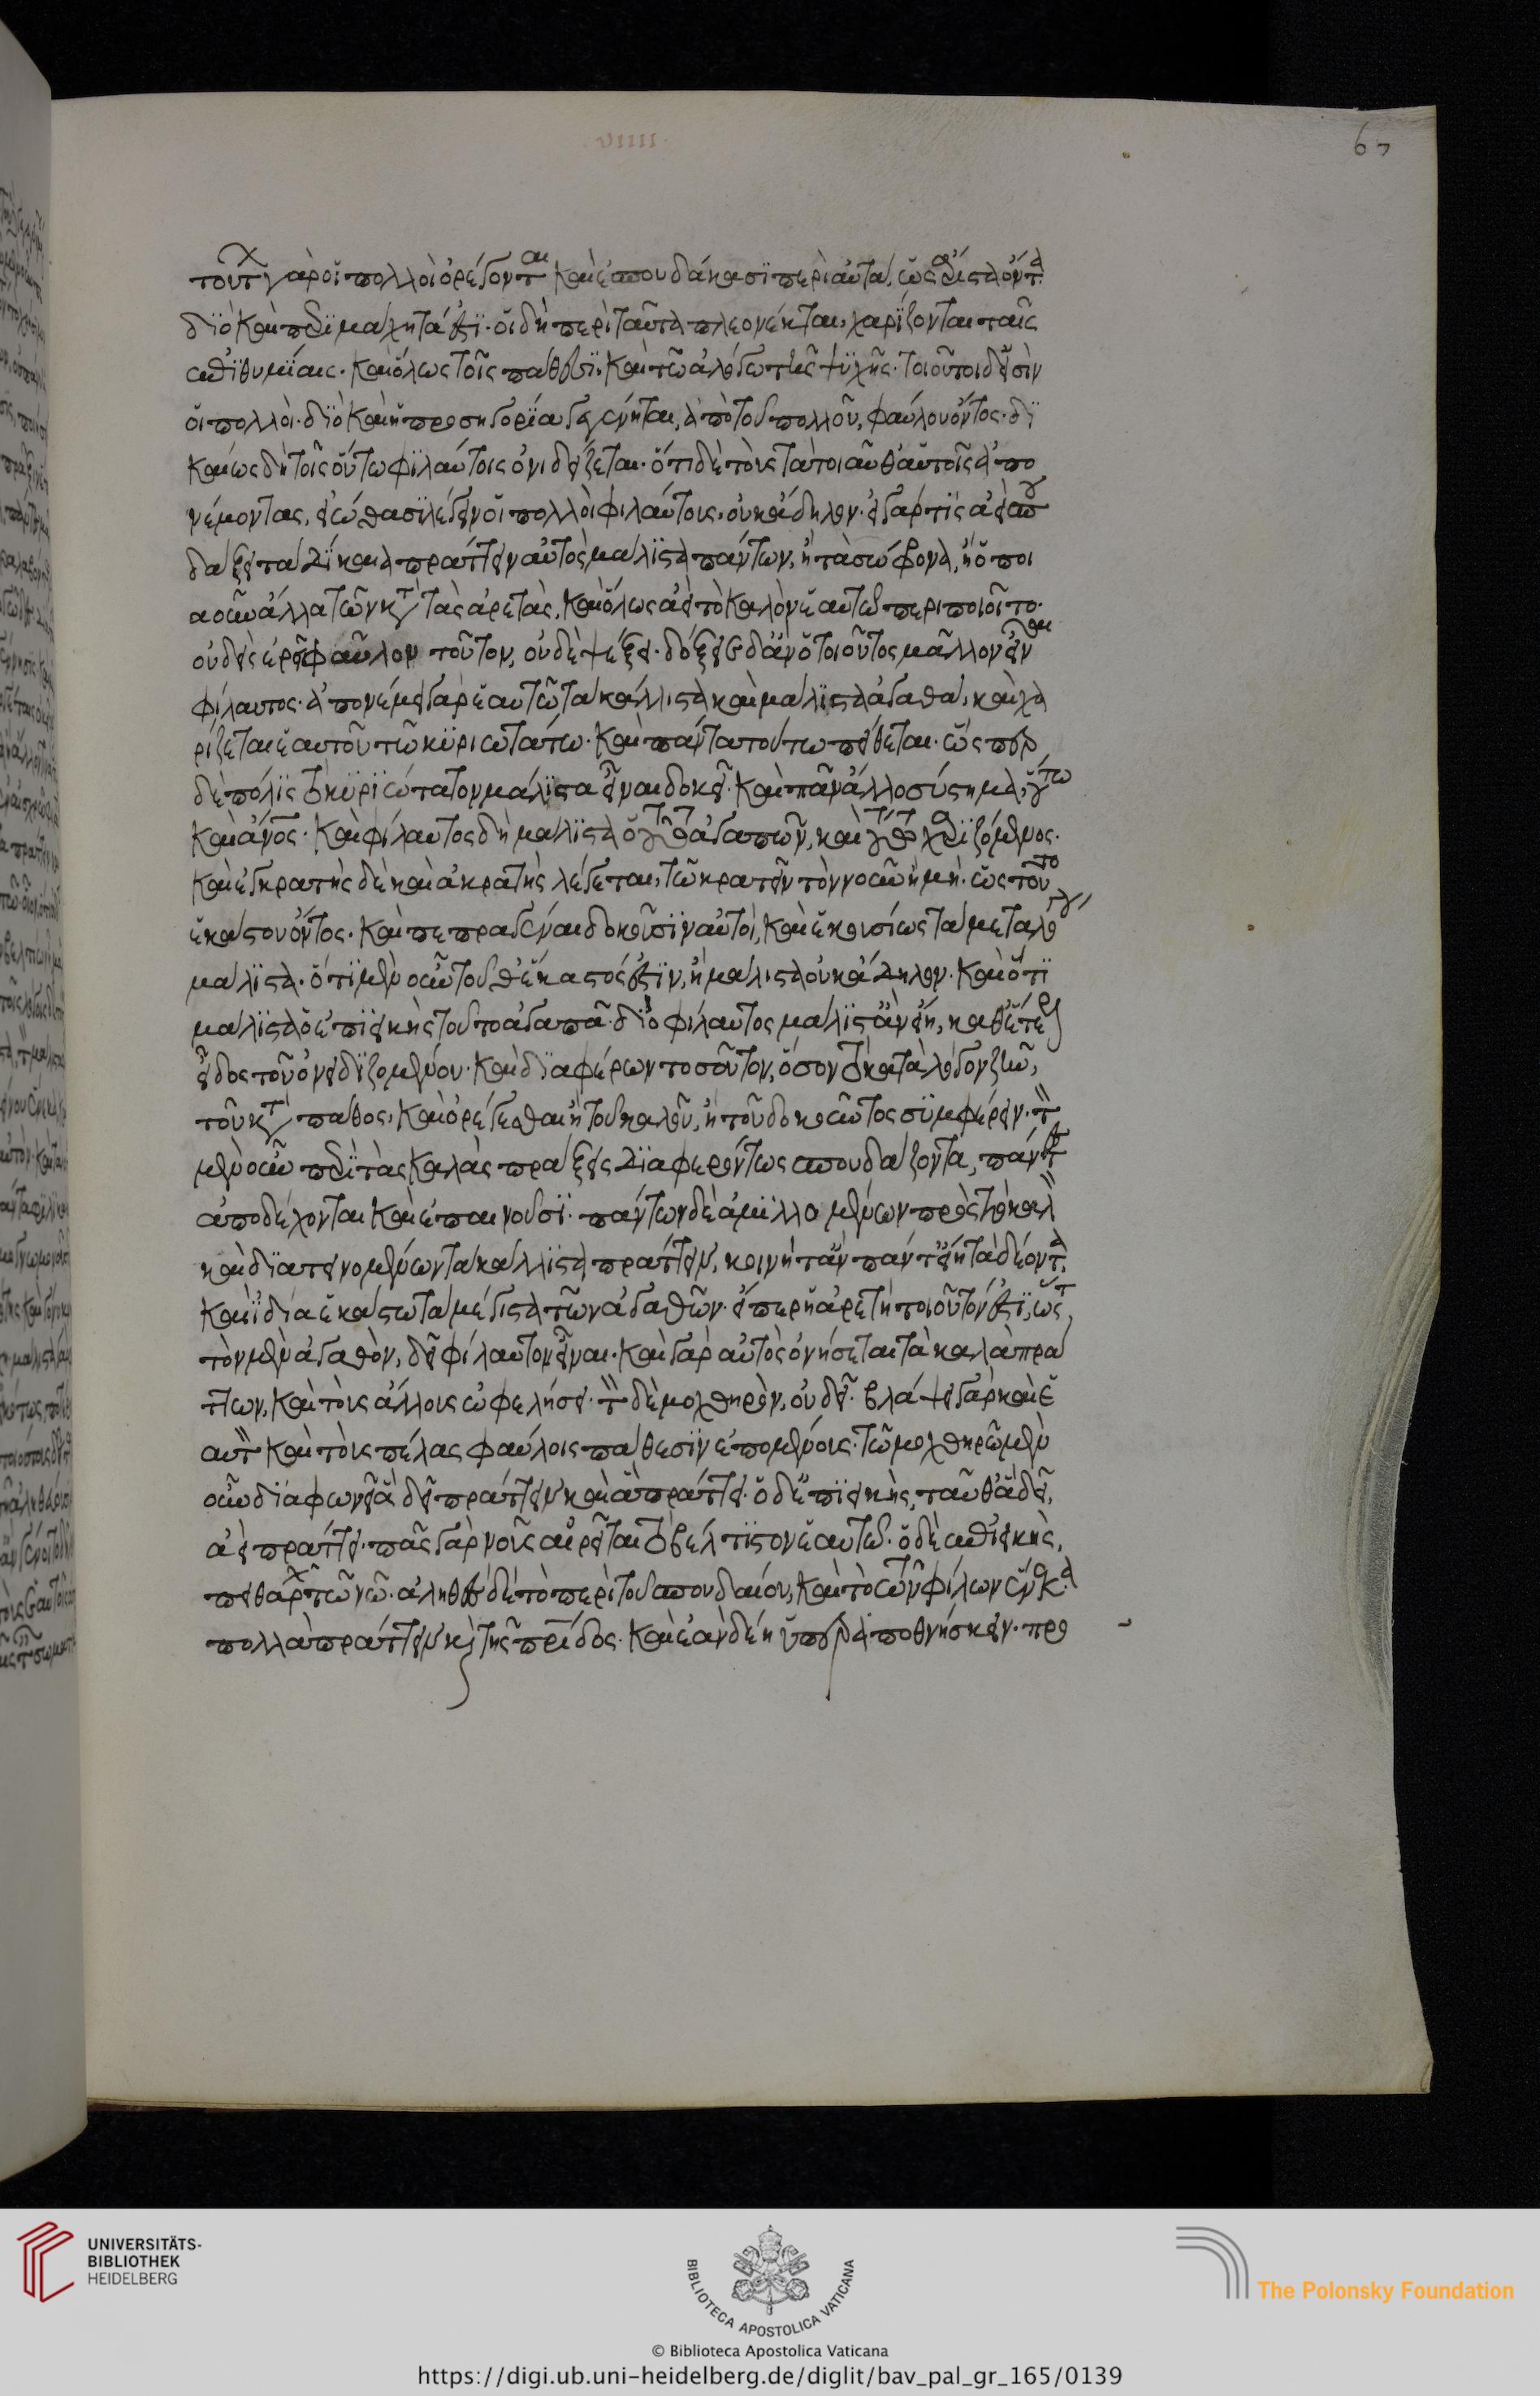 τούτων γὰρ οἱ πολλοὶ ὀρέγονται καὶ ἐσπουδάκασϊ περὶ αὐτὰ, ὡς ἄριστα ὄντα.
δϊὸ καὶ περιμάχητά ἐστϊ. οἱ δὴ περὶ ταῦτα πλεονέκται, χαρίζονται ταῖς
ἐπϊθυμΐαις. καὶ ὅλως τοῖς πάθεσϊ. καὶ τῶ ἀλόγω τῆς ψϋχῆς. τοιοῦτοι δ' εἰσὶν
οἱ πολλοὶ. δϊὸ καὶ ἡ προσηγορΐα γεγένηται, ἀπὸ τοῦ πολλοῦ, φαύλου ὄντος. δϊ
καίως δὴ τοῖς οὕτω φϊλαύτοις ὀνιδείζεται. ὅτι δὲ τοὺς τὰ τοιαῦθ' αὑτοῖς ἀπο
νέμοντας, εἰώθασϊ λέγειν οἱ πολλοὶ φιλαύτους, οὐκ ἄδηλον. εἰ γάρ τϊς ἀεὶ σπου
δάζει τὰ δΐκαια πράττειν αὐτὸς μάλϊστα πάντων, ἢ τὰ σώφρονα, ἢ ὁποι
αοῦν ἄλλα τῶν κατὰ τὰς ἀρετὰς, καὶ ὅλως ἀεὶ τὸ καλὸν ἑαυτῶ περιποιοῖτο.
οὐδεὶς ἐρεῖ φαῦλον τοῦτον, οὐδὲ ψέξει. δόξειε δ' ἂν ὁ τοιοῦτος μᾶλλον εἶναι
φίλαυτος. ἀπονέμει γὰρ ἑαυτῶ τὰ κάλλιστα καὶ μάλϊστα ἀγαθὰ, καὶ χα
ρίζεται ἑαυτοῦ τῶ κϋριωτάτω. καὶ πάντα τούτω πείθεται. ὥσπερ
δὲ πόλϊς τὸ κϋρϊώτατον μάλϊστα εἶναι δοκεῖ. καὶ πᾶν ἄλλο σύστημα, οὕτω
καὶ ἄνος. καὶ φίλαυτος δὴ μάλϊστα ὁ τοῦτο ἀγαπῶν, καὶ τούτω χαρϊζόμενος.
καὶ ἐγκρατὴς δὲ καὶ ἀκρατὴς λέγεται, τῶ κρατεῖν τὸν νοῦν ἢ μὴ. ὡς τούτου
ἑκάστου ὄντος. καὶ πεπραγέναι δοκοῦσϊν αὐτοὶ, καὶ ἑκουσίως τὰ μετὰ λόγου
μάλϊστα. ὅτϊ μὲν οὖν τοῦθ' ἕκαστός ἐστϊν, ἢ μάλιστα οὐκ ἄδηλον. καὶ ὅτϊ
μάλϊστα ὁ ἐπϊεικὴς τοῦτο ἀγαπᾶ. δϊὸ φίλαυτος μάλϊστ' ἂν εἴη, καθ' ἕτερον
εἶδος τοῦ ὀνειδϊζομένου. καὶ δϊαφέρων τοσοῦτον, ὅσον τὸ κατὰ λόγον ζῆν,
τοῦ κατὰ πάθος, καὶ ὀρέγεσθαι ἢ τοῦ καλοῦ, ἢ τοῦ δοκοῦντος σϋμφέρειν. τοὺς
μὲν οὖν περὶ τὰς καλὰς πράξεις δϊαφερόντως σπουδάζοντας, πάντες
ἀποδέχονται καὶ ἐπαινοῦσϊ. πάντων δὲ ἁμϊλλομένων πρὸς τὸ καλὸν
καὶ δϊατεινομένων τὰ κάλλϊστα πράττειν, κοινῆ τ' ἂν πάντ' εἴη τὰ δέοντα.
καὶ ϊδία ἑκάστω τὰ μέγιστα τῶν ἀγαθῶν. εἴπερ ἡ ἀρετὴ τοιοῦτόν ἐστϊ, ὥστε
τὸν μὲν ἀγαθὸν, δεῖ φίλαυτον εἶναι. καὶ γὰρ αὐτὸς ὀνήσεται τὰ καλὰ πρά
ττων, καὶ τοὺς ἄλλους ὠφελήσει. τὸν δὲ μοχθηρὸν, οὐ δεῖ. βλάψει γὰρ καὶ ἑ
αυτὸν καὶ τοὺς πέλας φαύλοις πάθεσϊν ἑπομένοις. τῶ μοχθηρῶ μὲν
οὖν δϊαφωνεῖ ἃ δεῖ πράττειν καὶ ἃ πράττει. ὁ δ' ἐπϊεικὴς, ταῦθ' ἃ δεῖ,
ἀεὶ πράττει. πᾶς γὰρ νοῦς αἱρεῖται τὸ βέλτϊστον ἑαυτῶ. ὁ δὲ ἐπιεικὴς,
πειθαρχεῖ τῶ νῶ. ἀληθὲς δὲ τὸ περὶ τοῦ σπουδαίου, καὶ τὸ τῶν φίλων ἕνεκα
πολλὰ πράττειν καὶ τῆς πρίδος. καὶ ἐὰν δέη ὑπεραποθνήσκειν. προ